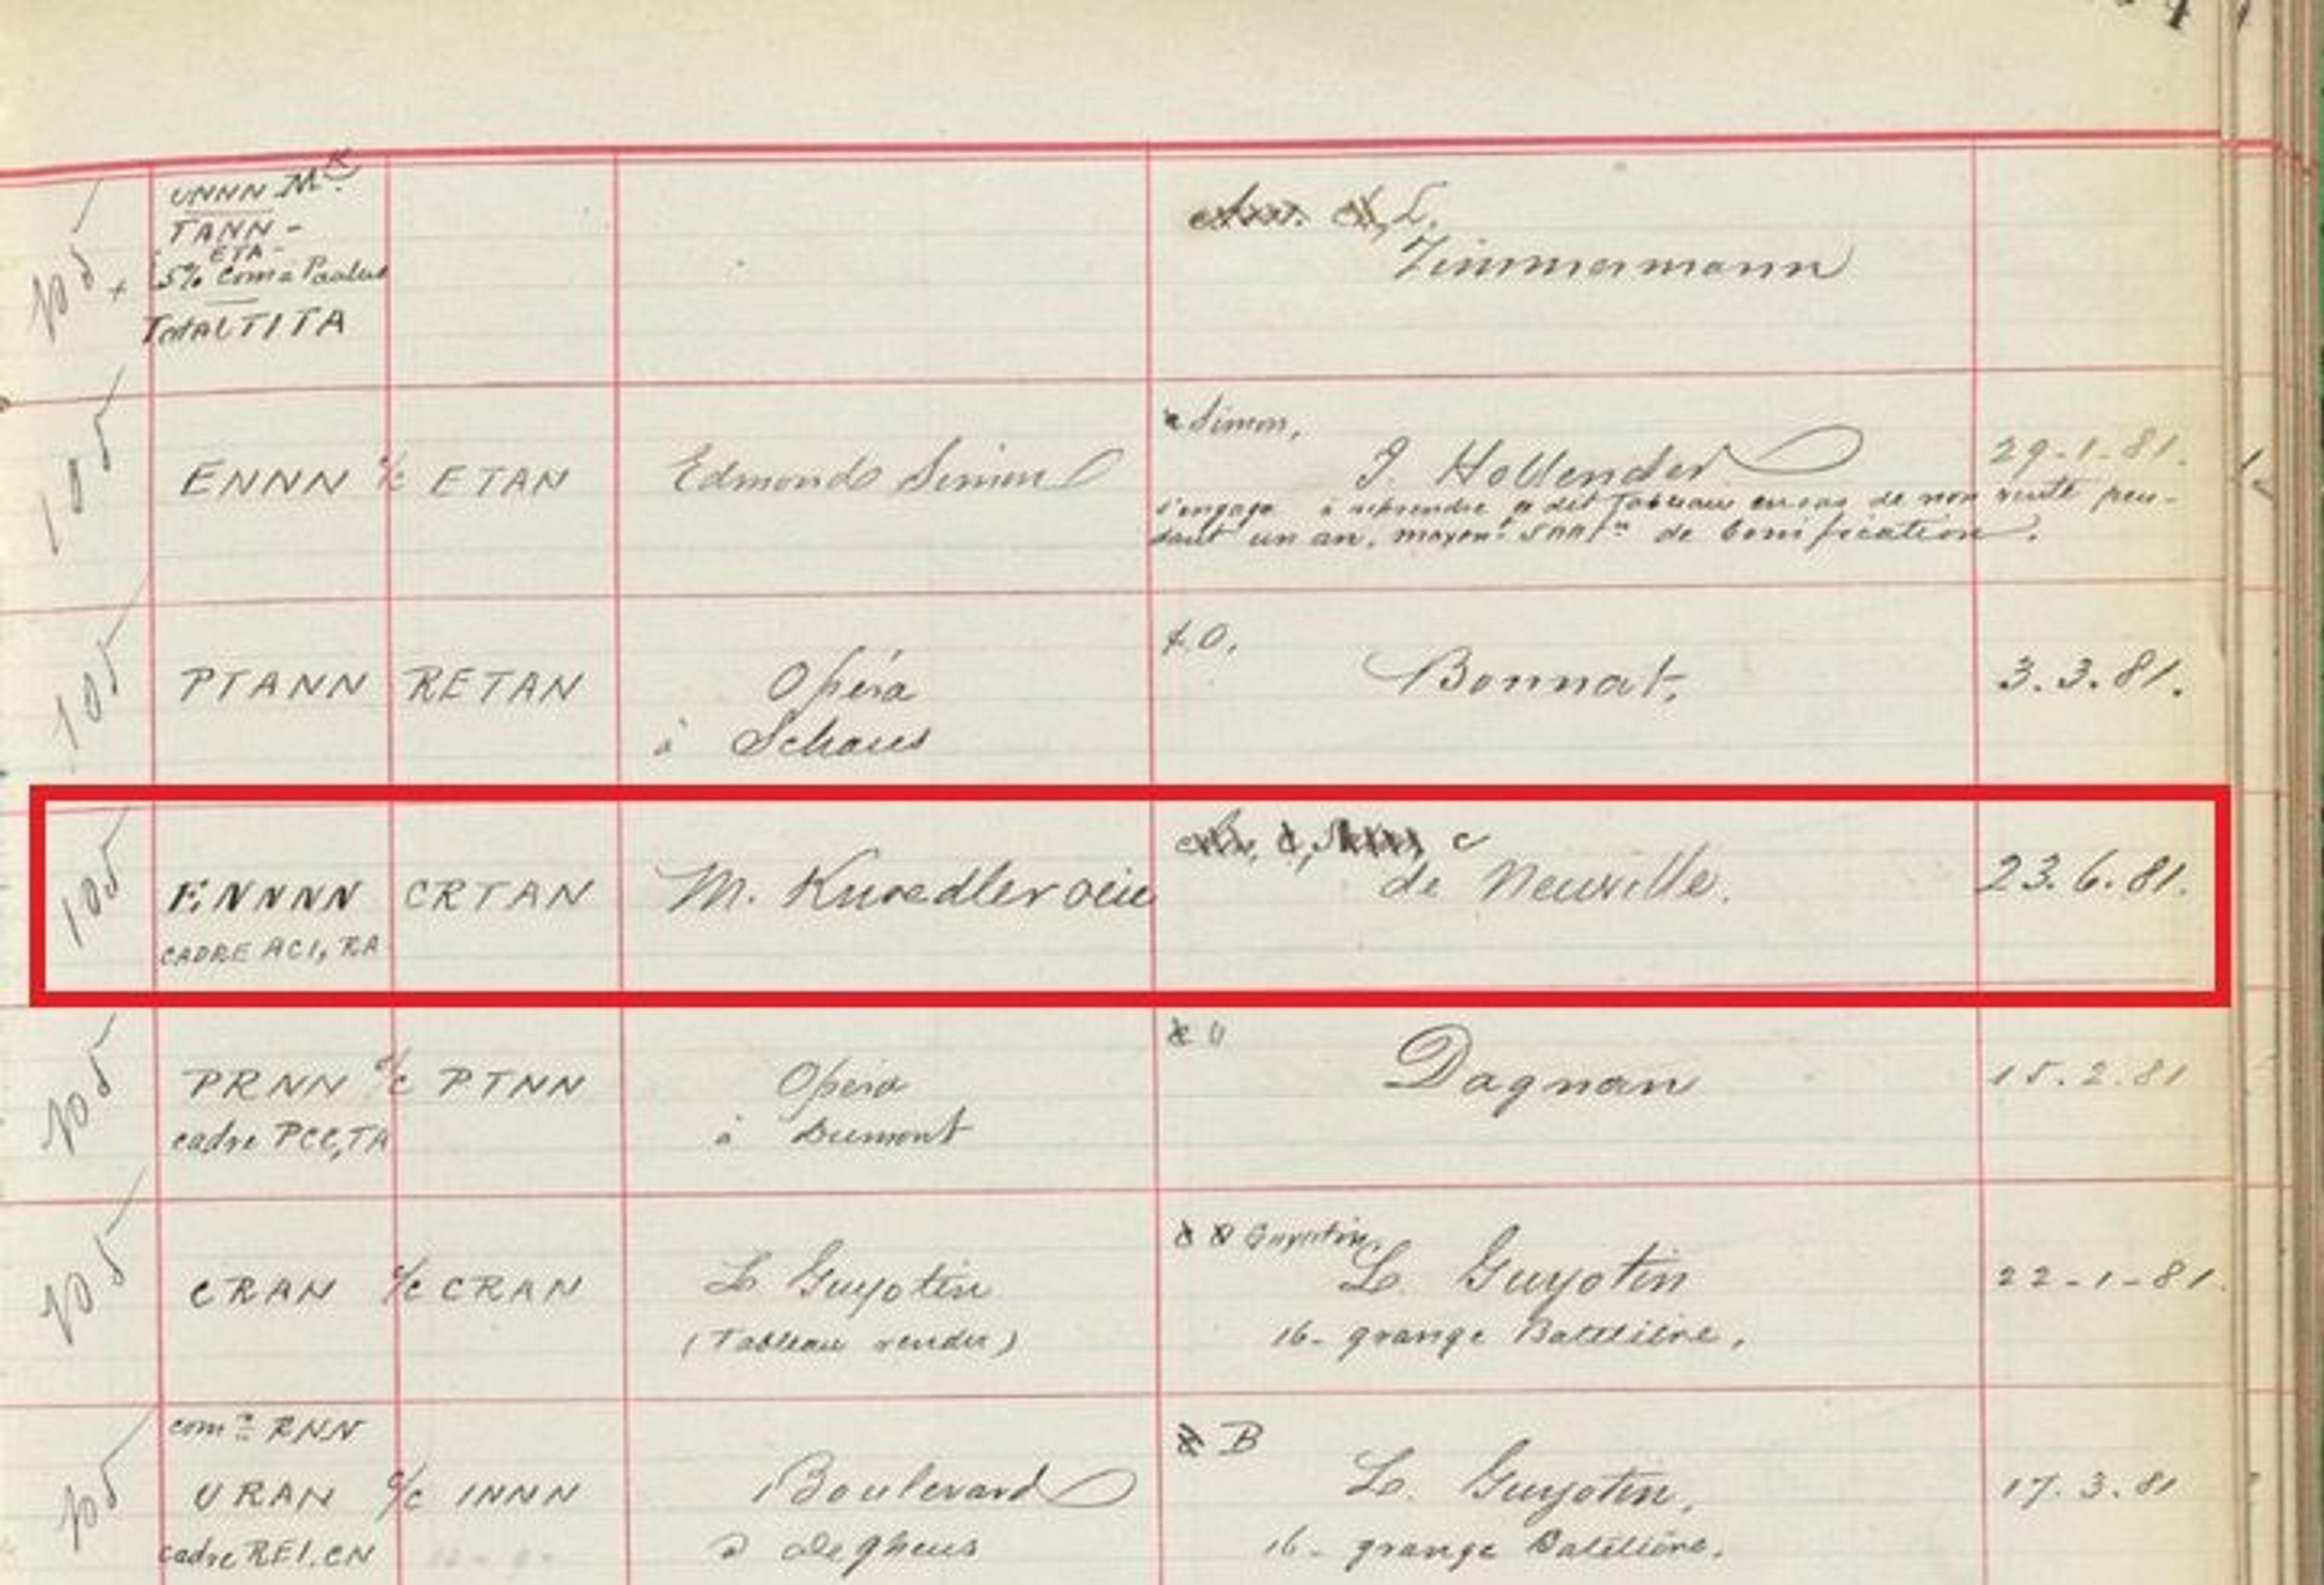 UNNN Mk
TANN -
ETA -
5% Com à Paulus
Total TITA
L.
Zimmermann
105
ENNN c/c ETAN Edmond Simon
Simon,
J. Hollender 29-1-81.
s'engage à reprendre le dit Tableau en cas de non vente pen-
dant un an, moyent de bonification.
105
PTANN RETAN Opéra
à Schaus
O,
Bonnat, 3.3.81.
105
ENNNN CRTAN M. Knoedler
CADRE ACI, RA
c
de Neuville. 23.6.81.
105
PRNN c/c PTNN Opéra
cadre PCC,TA à Dumont
Dagnan 15.2.81
105
CRAN c/c CRAN L Guyotin
(Tableau rendu)
Guyotin,
L. Guyotin 22-1-81.
16- grange Batelière,
105
com on RNN
URAN c/c INNN Boulevard
cadre REI.CN à
B
L. Guyotin, 17.3.81
16- grange Batelière.